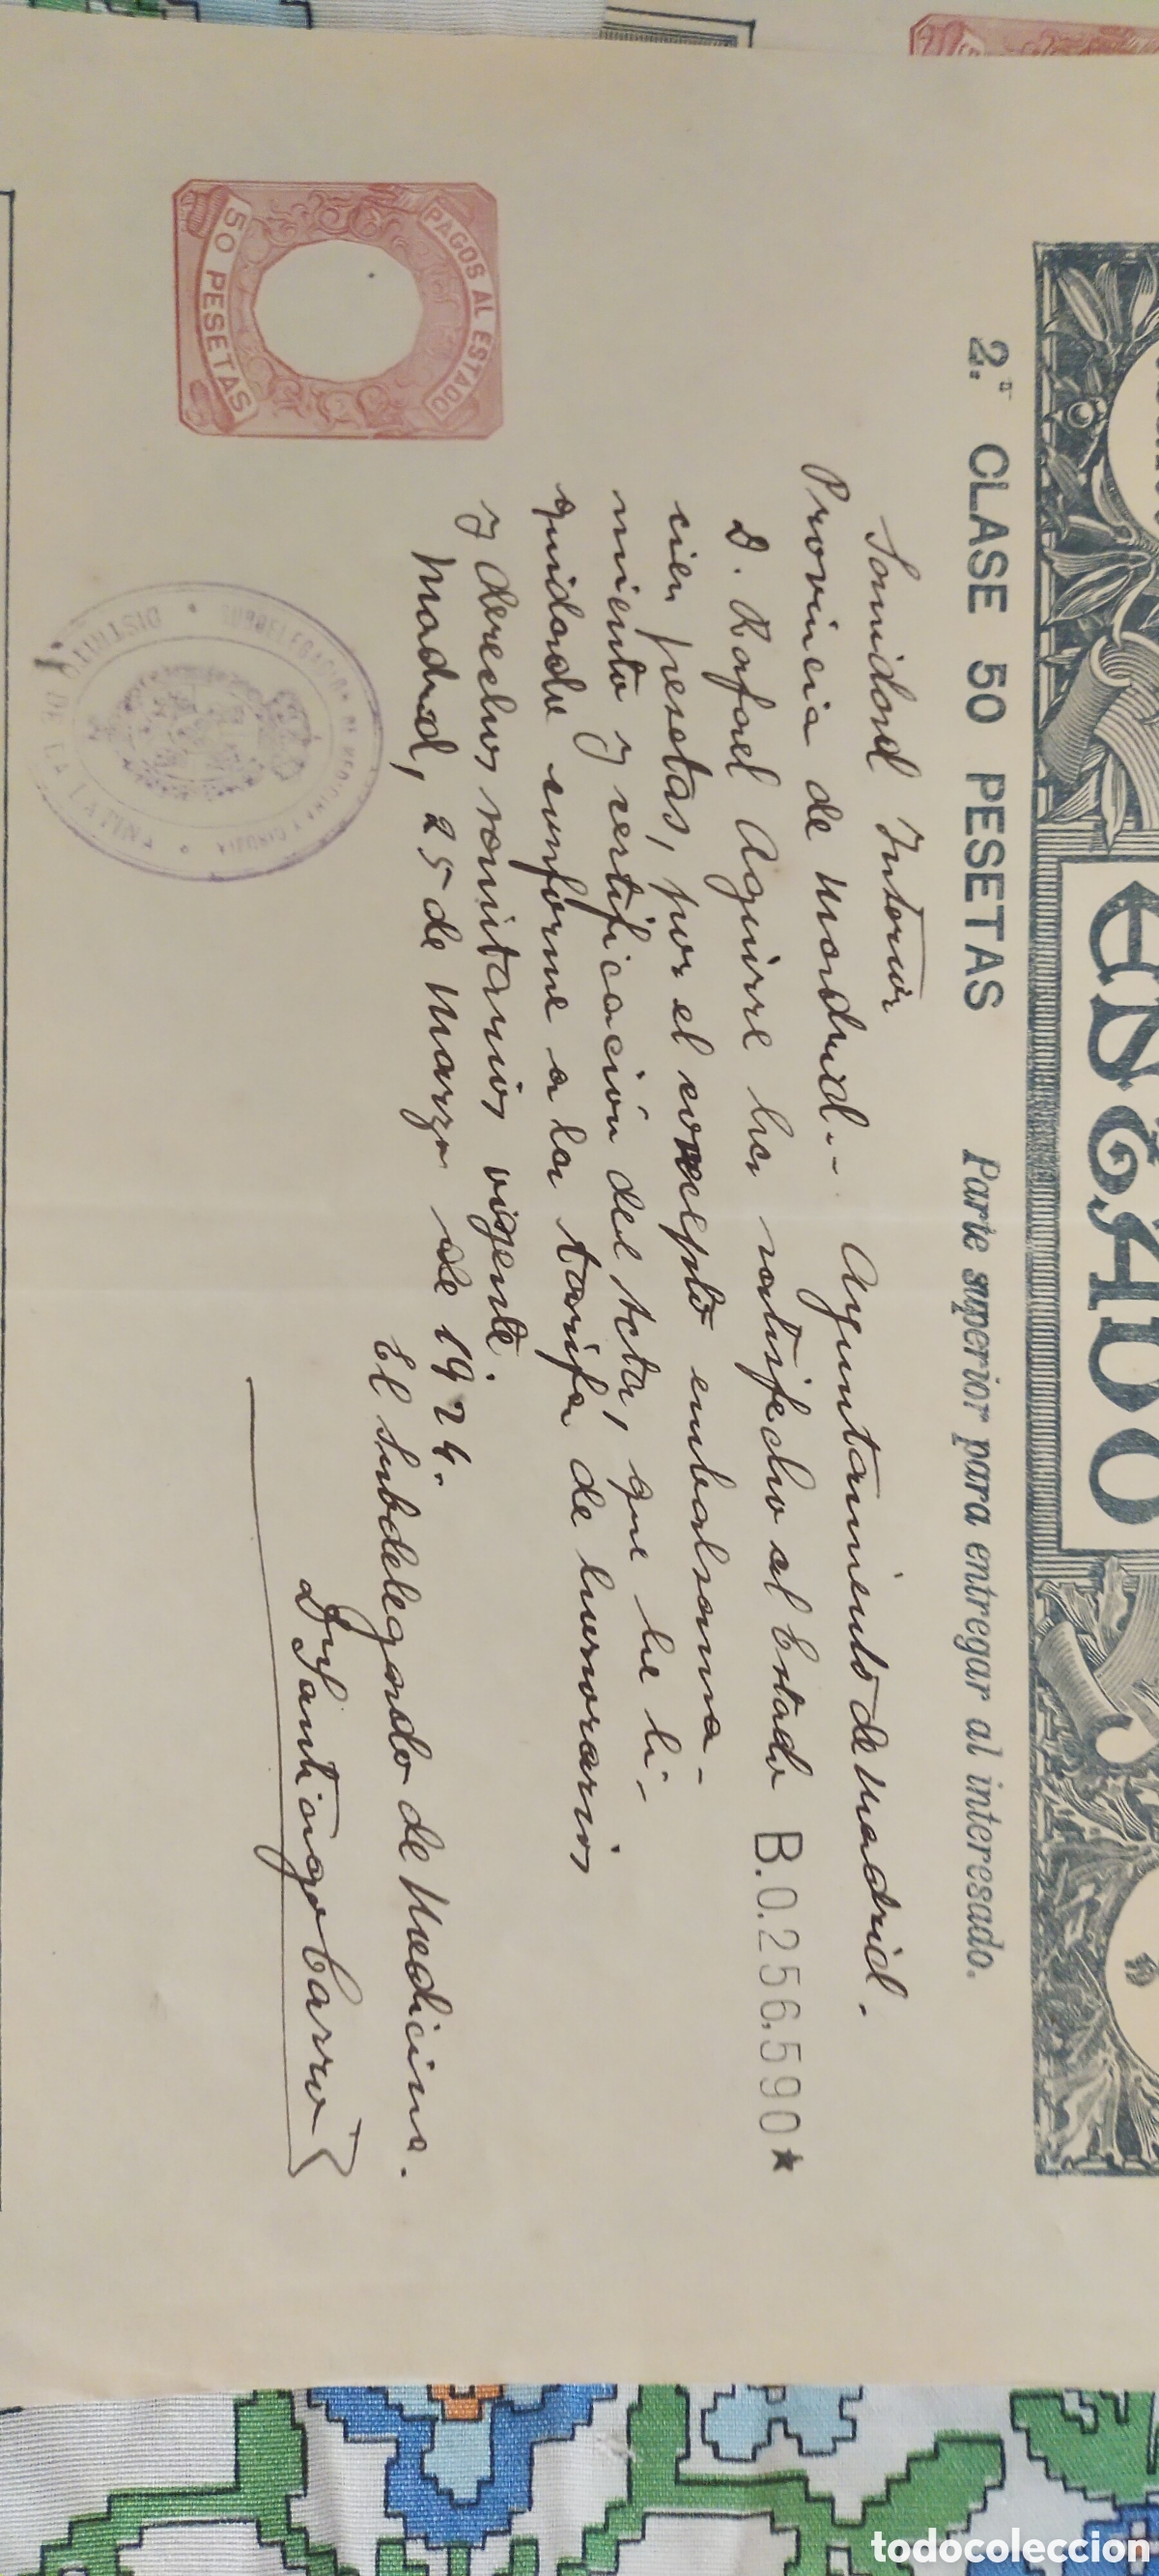 ENSADO
2.ª CLASE 50 PESETAS Parte superior para entregar al interesado.
Sanidad Interior
Provincia de Madrid.- Ayuntamiento de Madrid.
D. Rafael Aguirre ha satisfecho al Estado
B.0.256,590★
cien pesetas, por el concepto embalsama-
miento y certificación del acta, que he li-
quidado conforme a la tarifa de honorarios
y derechos sanitarios vigente.
Madrid, 25 de Marzo de 1924.
El Subdelegado de Medicina.
Santiago Carro
PAGOS AL ESTADO
50 PESETAS
SUBDELEGACION DE MEDICINA Y CIRUJIA
DISTRITO DE LA LATINA
todocoleccion